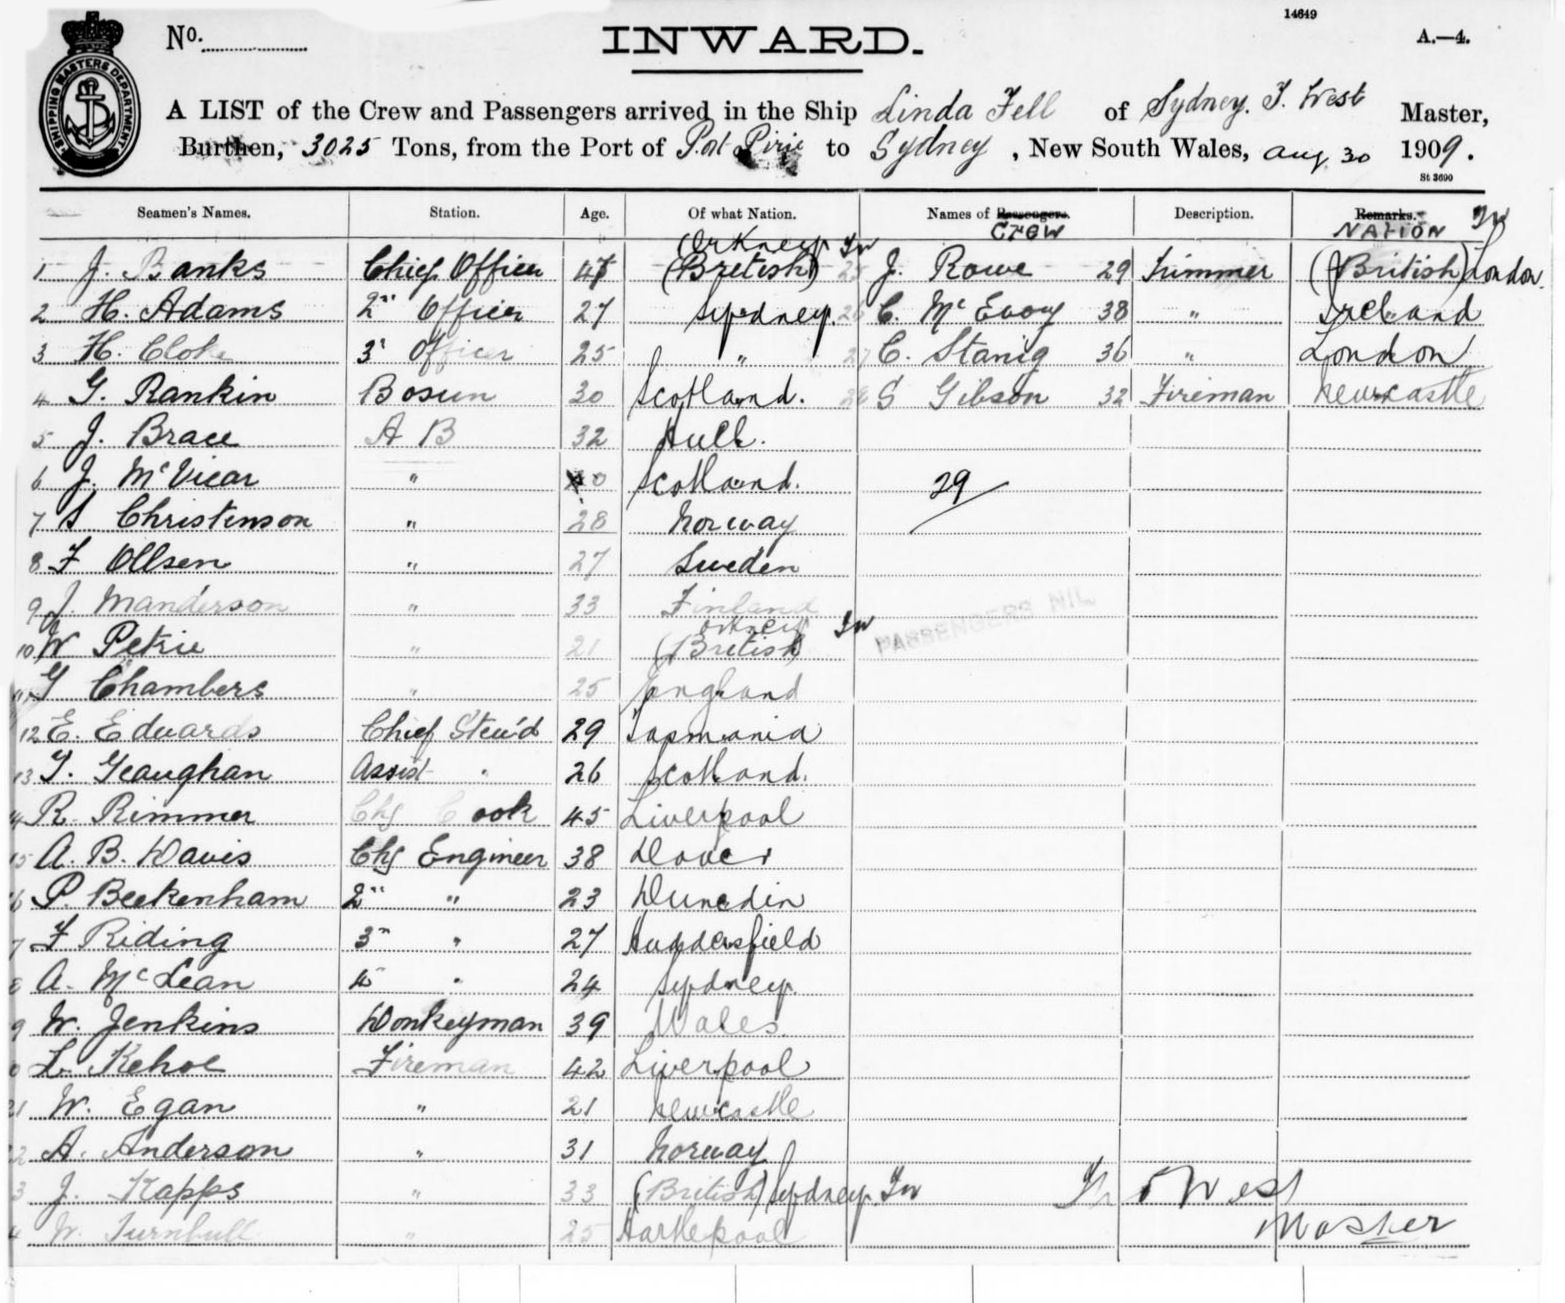 14649
No. INWARD. A.—4.
SHIPPING MASTERS DEPARTMENT
A LIST of the Crew and Passengers arrived in the Ship Linda Fell of Sydney. T. West Master,
Burthen, 3025 Tons, from the Port of Port Pirie to Sydney, New South Wales, Aug 30 1909.
St 3690
Seamen's Names. Station. Age. Of what Nation. Names of Passengers. CREW Description. Remarks. NATION TW
1 J. Banks Chief Officer 47 (British) Orkney TW 25 J. Rowe 29 Trimmer (British) London
2 H. Adams 2nd Officer 27 Sydney. 26 C. McEvoy 38 " Ireland
3 H. Cloke 3rd Officer 25 " 27 C. Stanig 36 " London
4 G. Rankin Bosun 30 Scotland. 28 S Gibson 32 Fireman Newcastle
5 J. Brace A B 32 Hull.
6 J. McVicar " Scotland. 29
7 S Christinson " 28 Norway
8 F Ollsen " 27 Sweden
9 J. Manderson " 33 Finland
PASSENGERS NIL
10 W Petrie " 21 (British) Orkney TW
11 G Chambers " 25 England
12 E. Edwards Chief Stew'd 29 Tasmania
13 T. Geaughan Assist " 26 Scotland.
14 R. Rimmer Chf Cook 45 Liverpool
15 A. B. Davis Chf Engineer 38 Dover
16 P. Beckenham 2nd " 23 Dunedin
17 F Riding 3rd " 27 Huddersfield
8 A. McLean 4 " 24 Sydney
9 W. Jenkins Donkeyman 39 Wales.
0 L. Kehoe Fireman 42 Liverpool
21 W. Egan " 21 Newcastle
22 A. Anderson " 31 Norway
3 J. Kapps " 33 (British) Sydney. TW
4 W. Turnbull " 25 Hartlepool
West
Master